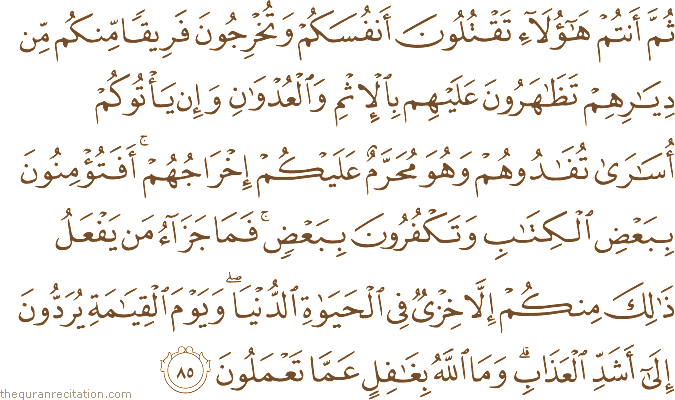 ثُمَّ أَنتُمْ هَـٰٓؤُلَآءِ تَقْتُلُونَ أَنفُسَكُمْ وَتُخْرِجُونَ فَرِيقًا مِّنكُم مِّن
دِيَـٰرِهِمْ تَظَـٰهَرُونَ عَلَيْهِم بِٱلْإِثْمِ وَٱلْعُدْوَٰنِ وَإِن يَأْتُوكُمْ
أُسَـٰرَىٰ تُفَـٰدُوهُمْ وَهُوَ مُحَرَّمٌ عَلَيْكُمْ إِخْرَاجُهُمْ ۚ أَفَتُؤْمِنُونَ
بِبَعْضِ ٱلْكِتَـٰبِ وَتَكْفُرُونَ بِبَعْضٍ ۚ فَمَا جَزَآءُ مَن يَفْعَلُ
ذَٰلِكَ مِنكُمْ إِلَّا خِزْىٌ فِى ٱلْحَيَوٰةِ ٱلدُّنْيَا ۖ وَيَوْمَ ٱلْقِيَـٰمَةِ يُرَدُّونَ
إِلَىٰٓ أَشَدِّ ٱلْعَذَابِ ۗ وَمَا ٱللَّهُ بِغَـٰفِلٍ عَمَّا تَعْمَلُونَ ٨٥
thequranrecitation.com